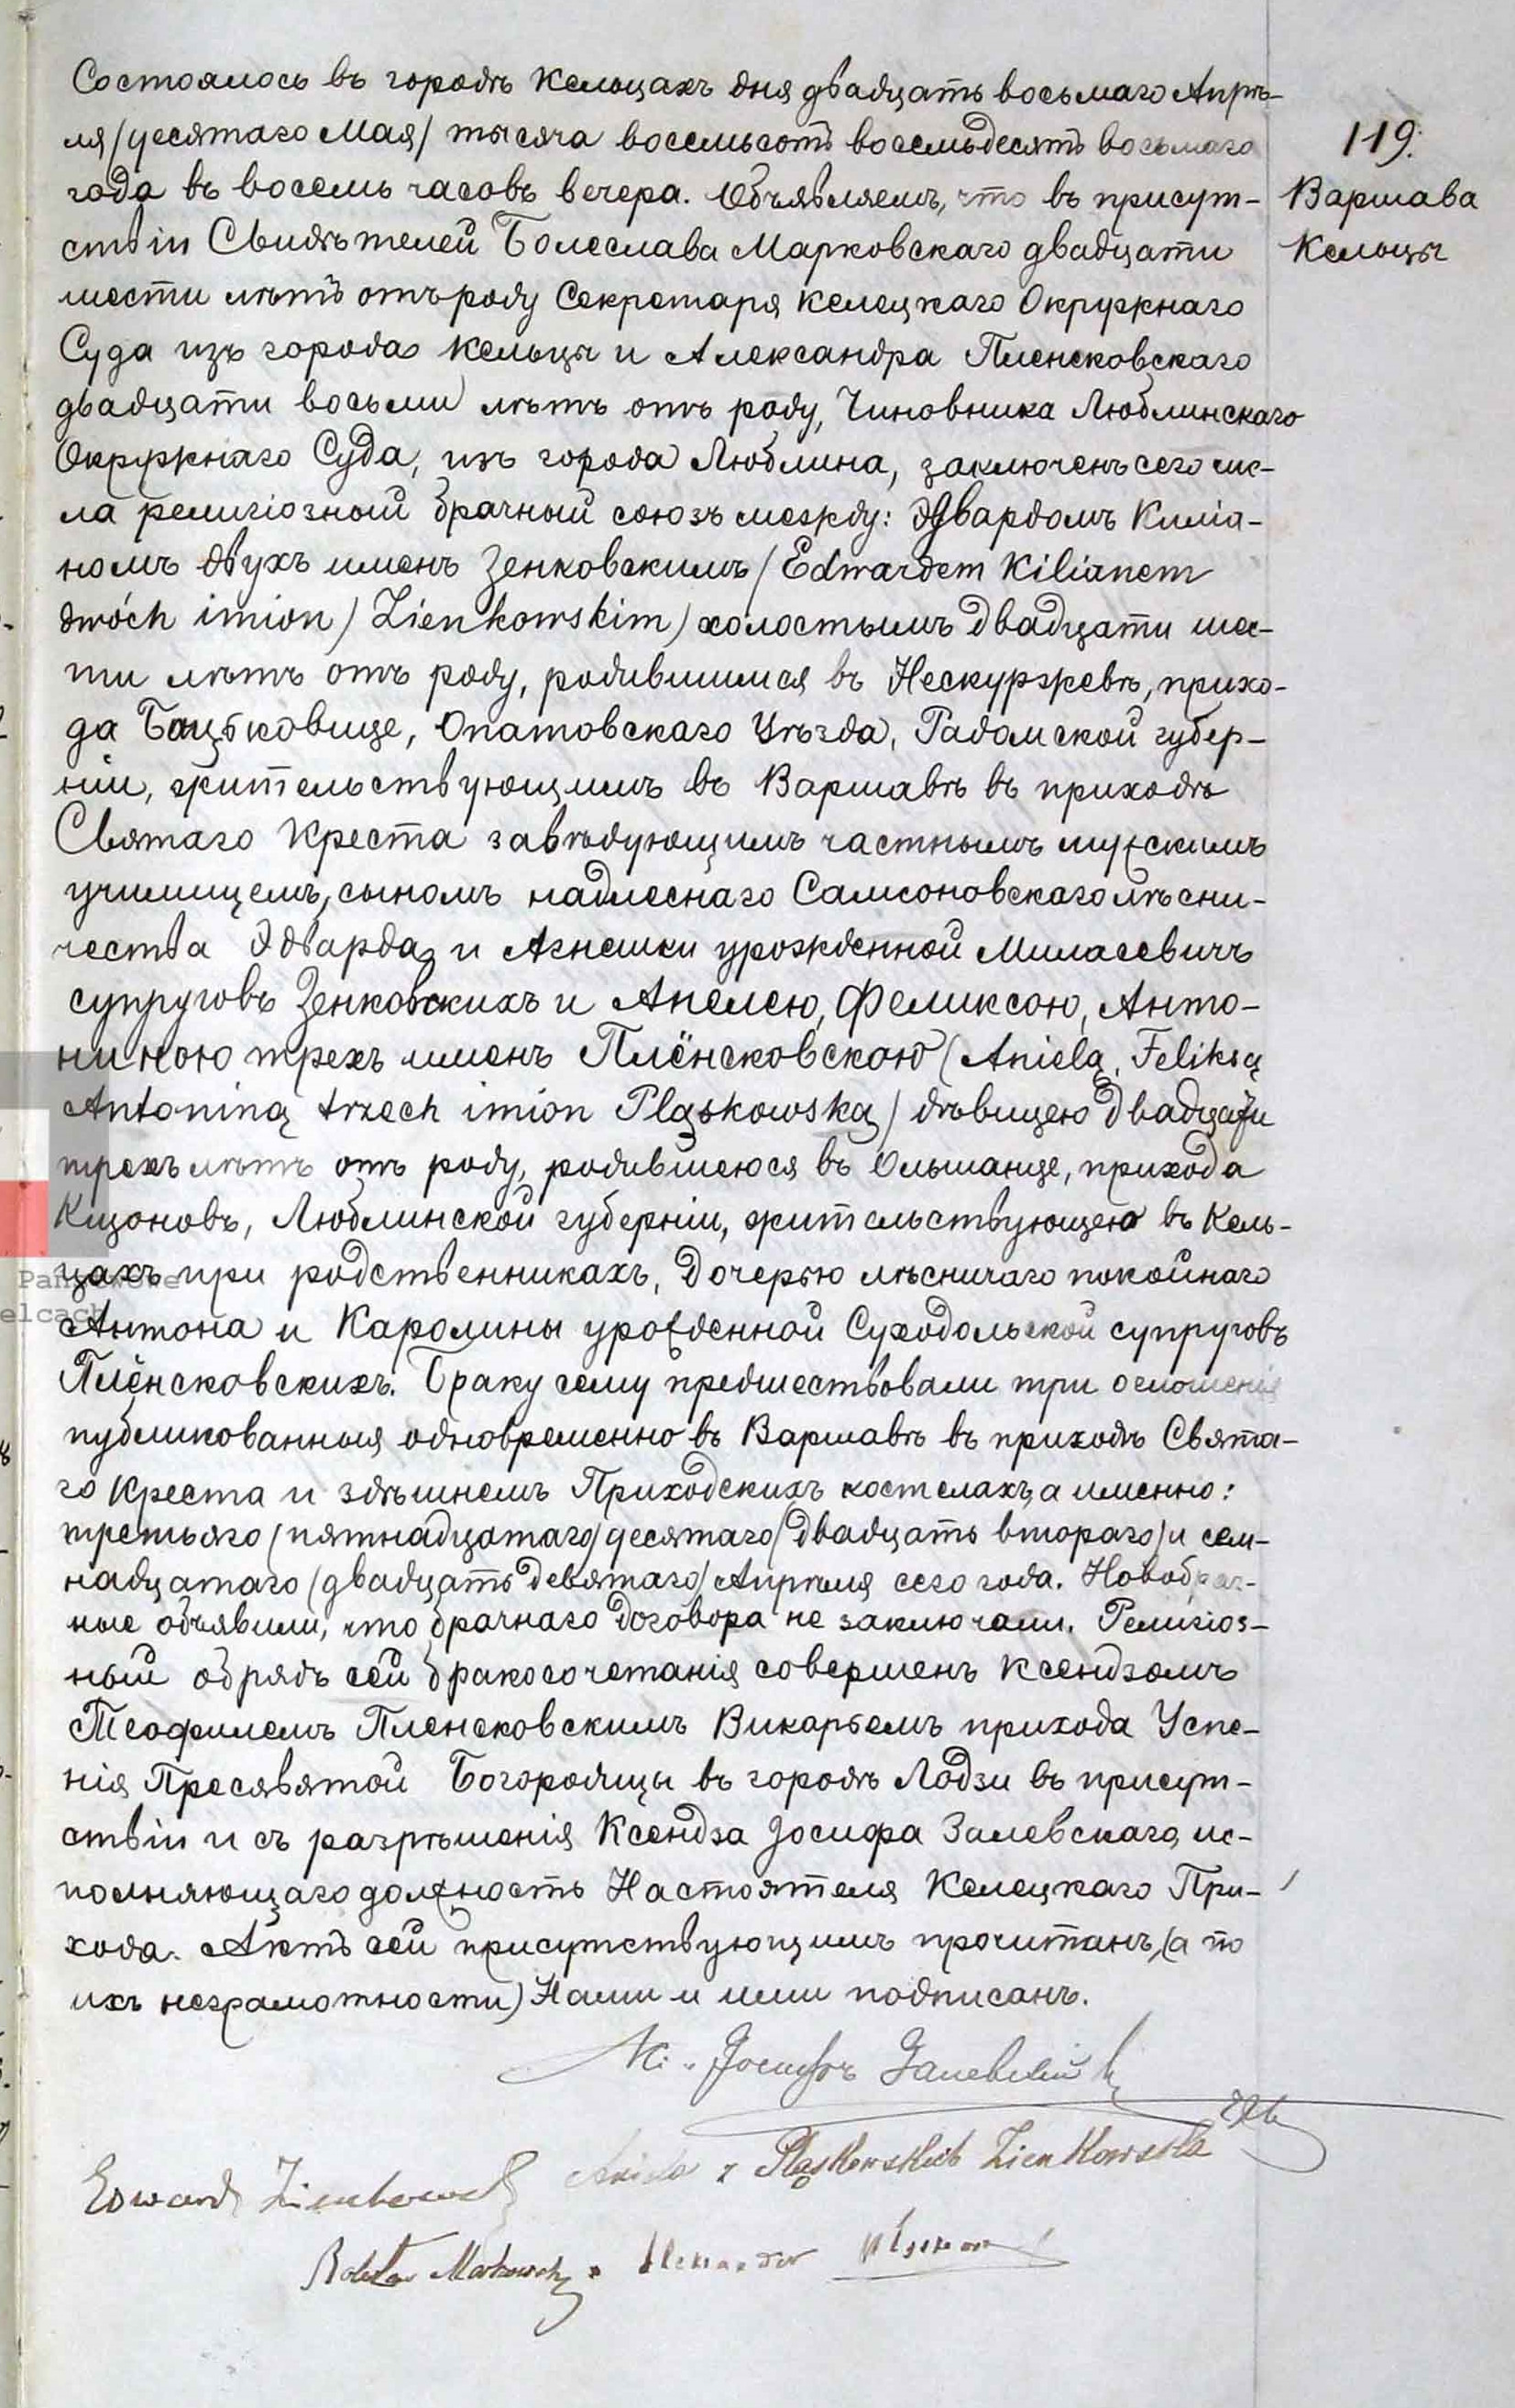 Состоялось въ городѣ Кельцахъ дня двадцать восьмаго Апрѣ-
ля /десятаго Мая/ тысяча восемьсотъ восемьдесятъ восьмаго
года въ восемь часовъ вечера. Объявляемъ, что въ присут-
ствіи Свидѣтелей Болеслава Марковскаго двадцати
шести лѣтъ отъ роду Секретаря Келецкаго Окружнаго
Суда изъ города Кельцы и Александра Пленсковскаго
двадцати восьми лѣтъ отъ роду, Чиновника Люблинскаго
Окружнаго Суда, изъ города Люблина, заключенъ сего чис-
ла религіозный брачный союзъ между: Эдвардомъ Киліа-
номъ двухъ именъ Зенковскимъ /Edwardem Kilianem
dwóch imion) Zienkowskim) холостымъ двадцати шес-
ти лѣтъ отъ роду, родившимся въ Нескуржевѣ, прихо-
да Бацьковице, Опатовскаго Уѣзда, Радомской губер-
ніи, жительствующимъ въ Варшавѣ въ приходѣ
Святаго Креста завѣдующимъ частнымъ мужскимъ
училищемъ, сыномъ надлеснаго Самсоновскаго лѣсни-
чества Эдварда и Агнешки урожденной Миласевичъ
супруговъ Зенковскихъ и Анелею, Феликсою, Анто-
ниною трехъ именъ Плёнсковскою (Anielą, Feliksą
Antoniną trzech imion Pląskowską) дѣвицею двадцати
трехъ лѣтъ отъ роду, родившеюся въ Ольшанце, прихода
Кщоновъ, Люблинской губерніи, жительствующею въ Кель-
цахъ при родственникахъ, дочерью лѣсничаго покойнаго
Антона и Каролины урожденной Суходольской супруговъ
Плёнсковскихъ. Браку сему предшествовали три оглошенія
публикованныя одновременно въ Варшавѣ въ приходѣ Свята-
го Креста и здѣшнемъ Приходскихъ костелахъ, а именно:
третьяго (пятнадцатаго) десятаго (двадцать втораго) и сем-
надцатаго (двадцать девятаго) Апрѣля сего года. Новобрач-
ные объявили, что брачнаго договора не заключали. Религіоз-
ный обрядъ сей бракосочетанія совершенъ Ксендзомъ
Теофилемъ Пленсковскимъ Викарьемъ прихода Успе-
нія Пресвятой Богородицы въ городѣ Лодзи въ присут-
ствіи и съ разрѣшенія Ксендза Іосифа Залевскаго, ис-
полняющаго должность Настоятеля Келецкаго При-
хода. Актъ сей присутствующимъ прочитанъ, (а по
ихъ неграмотности) Нами и ими подписанъ.
119.
Варшава
Кельцы
Кс. Іосифъ Залевскій
Aniela z Pląskowskich Zienkowska
Edward Zienkowski
Bolesław Markowski Alexander Pląskowski